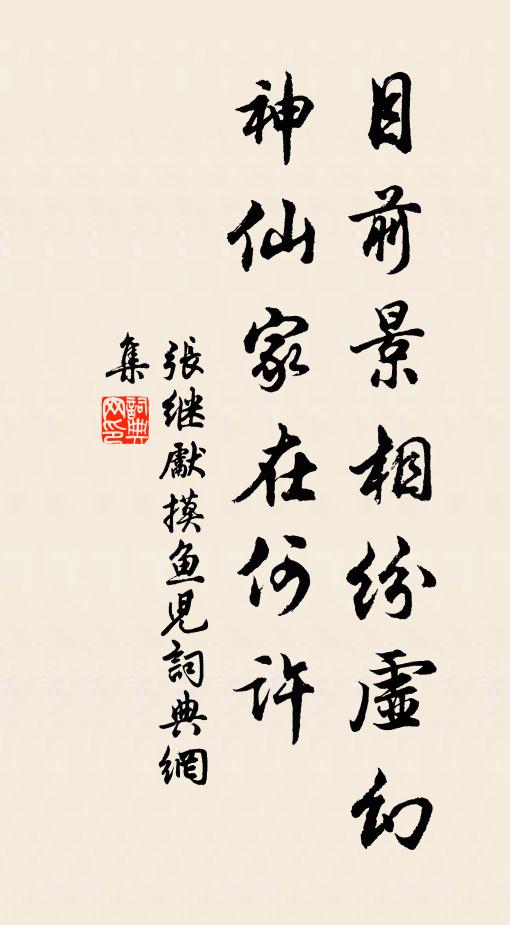 目前景相纷虛幻
神仙家在何许
張继獻摸鱼児詞典網
集
詞典
网印